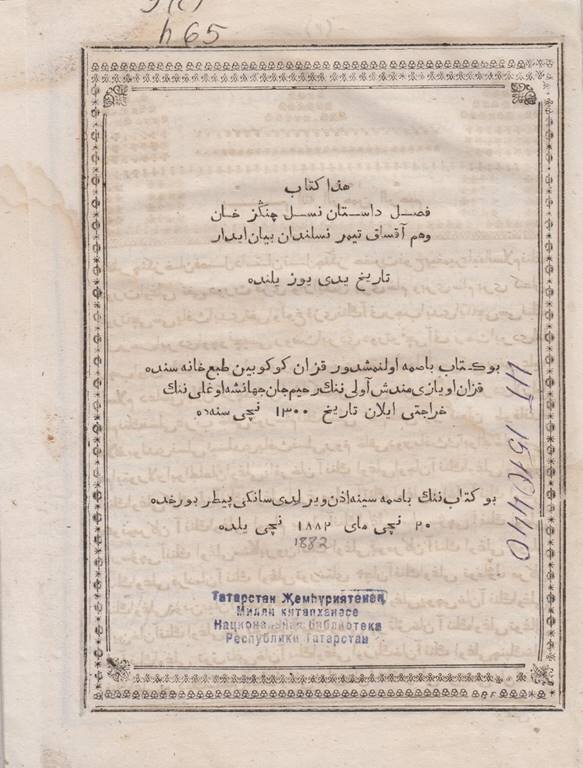 h 65
هذا كتاب
فصل داستان نسل چنگز خان
وهم آقساق تيمر نسلندان بيان ايدار
تاريخ يدى يوز يلنده
بو كتاب باصمه اولنمشدور قزان كوكوبين طبع خانه سنده
قزان اويازى مندش آولى ننك رحيم جان جهانشه اوغلى ننك
خراجتى ايلان تاريخ ١٣٠٠ نچى سنه ده
بو كتاب ننك باصمه سينه اذن ويرلدى سانكى پيطر بورخده
٢٠ نچى ماى ١٨٨٢ نچى يلده
1882
Татарстан Җөмһүриятенең
Милли китапханәсе
Национальная библиотека
Республики Татарстан